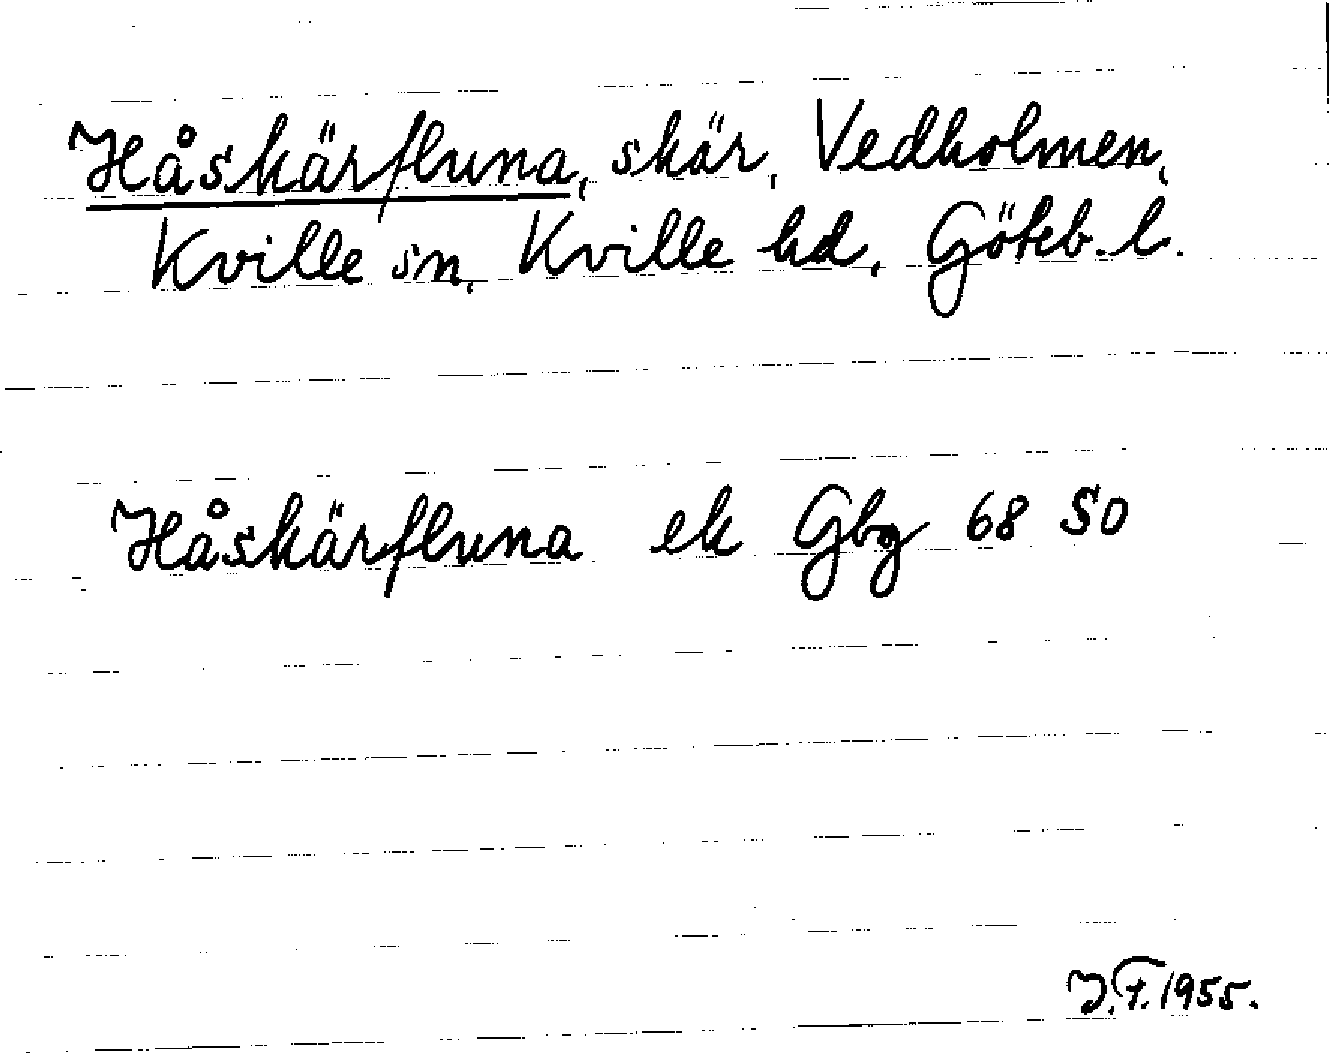 Håskärfluna, skär, Vedholmen,
Kville sn, Kville hd, Göteb. l.
Håskärfluna ek Gbg 68 SO
J.F. 1955.